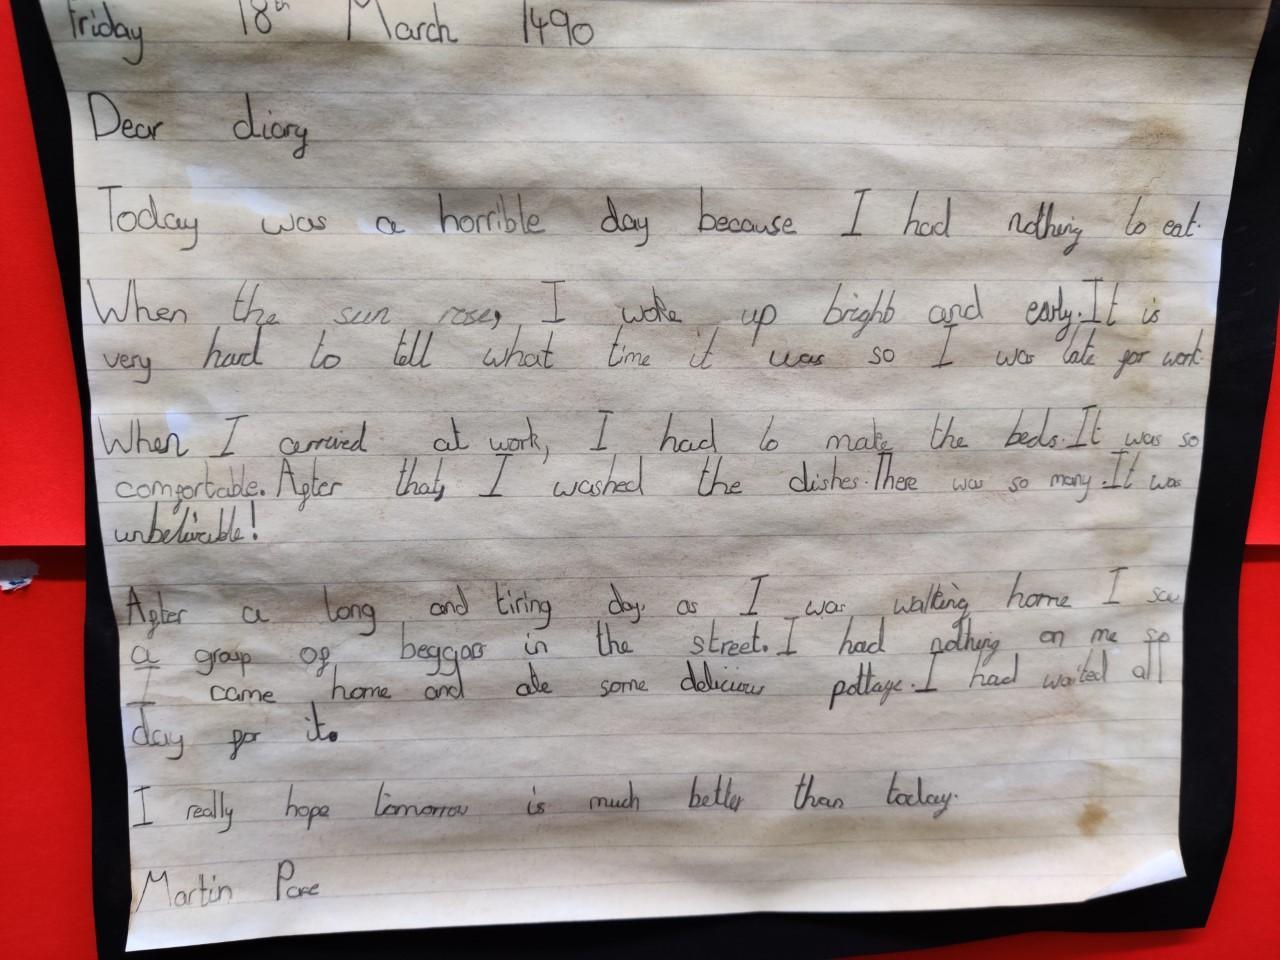 Friday 18th March 1490
Dear diary
Today was a horrible day because I had nothing to eat.
When the sun rose, I woke up bright and early. It is
very hard to tell what time it was so I was late for work.
When I arrived at work, I had to make the beds. It was so
comfortable. After that, I washed the dishes. There was so many. It was
unbelivable!
After a long and tiring day, as I was walking home I saw
a group of beggars in the street. I had nothing on me so
I came home and ate some delicious pottage. I had waited all
day for it.
I really hope tomorrow is much better than today.
Martin